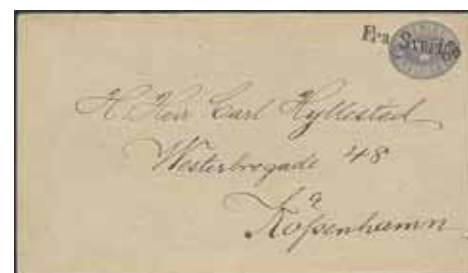 Fra Sverige
H Herr Carl Hyllested
Westerbrogade 48
á
Köpenhamn